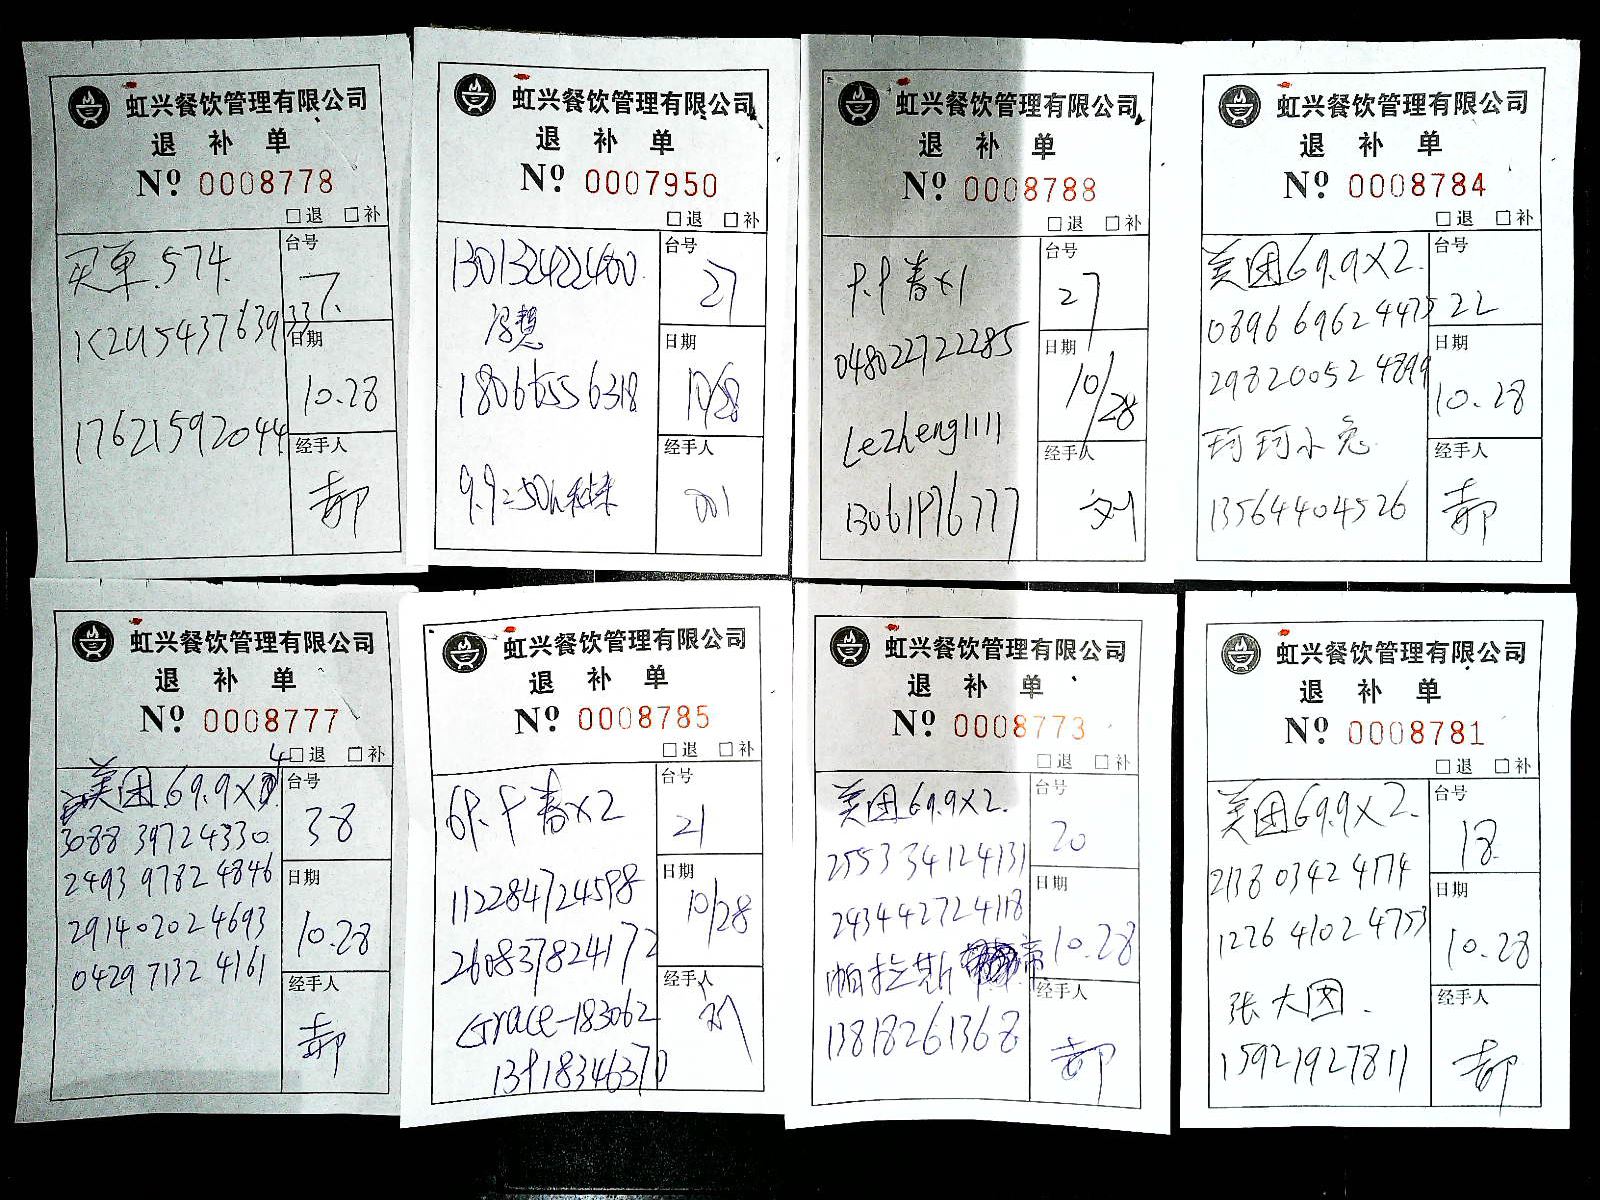 虹兴餐饮管理有限公司
退 补 单
Nº 0008778
□退 □补
买单.574.
台号
7.
K2U543763933
日期
10.28
17621592044
经手人
郝
虹兴餐饮管理有限公司
退 补 单
Nº 0007950
□退 □补
130132422480.
台号
27
冯慧
日期
10/28
18066556318
经手人
001
虹兴餐饮管理有限公司
退 补 单
Nº 0008788
□退 □补
台号
27
048022722285
日期
10/28
Lezheng1111
经手人
刘
13061976777
虹兴餐饮管理有限公司
退 补 单
Nº 0008784
□退 □补
美团69.9×2.
台号
22
0896 6962 4475
日期
2982 0052 4899
10.28
珂珂小兔
经手人
13564404526
郝
虹兴餐饮管理有限公司
退 补 单
Nº 0008777
□退 □补
美团69.9×4
台号
38
3088 3972 4330
2493 9782 4846
日期
2914 0202 4693
10.28
0429 7132 4161
经手人
郝
虹兴餐饮管理有限公司
退 补 单
Nº 0008785
□退 □补
台号
21
112284724598
日期
10/28
260837824172
经手人
刘
Grace-183062
13918346370
虹兴餐饮管理有限公司
退 补 单
Nº 0008773
□退 □补
美团69.9×2.
台号
20
2553 3412 4131
日期
2434 4272 4118
10.28
帕拉斯帝
经手人
13818261368
郝
虹兴餐饮管理有限公司
退 补 单
Nº 0008781
□退 □补
美团69.9×2.
台号
18.
2138 0342 4774
日期
1226 4102 4753
10.28
张大团.
经手人
15921927811
郝